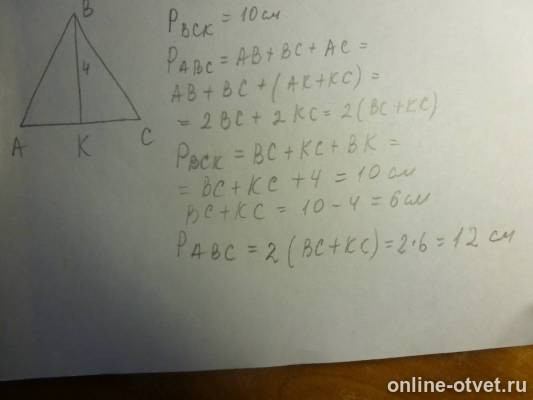 B
4
A
K
C
P BCK = 10 см
P ABC = AB + BC + AC =
AB + BC + (AK + KC) =
= 2BC + 2KC = 2(BC + KC)
P BCK = BC + KC + BK =
= BC + KC + 4 = 10 см
BC + KC = 10 - 4 = 6 см
P ABC = 2(BC + KC) = 2·6 = 12 см
online-otvet.ru